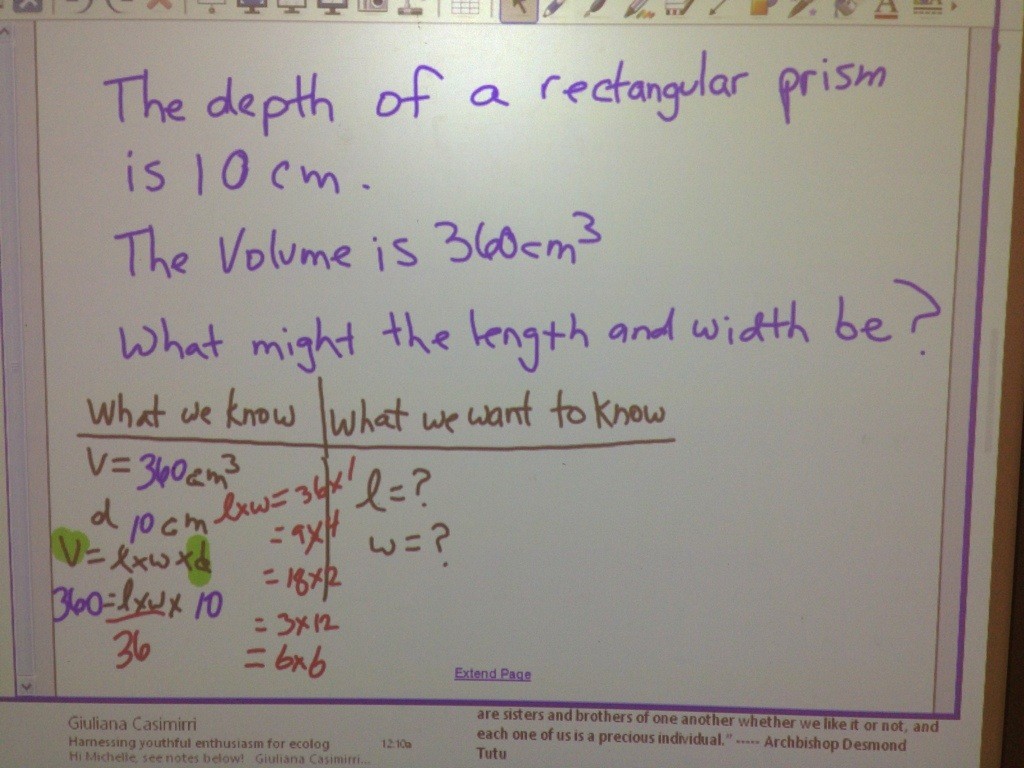 The depth of a rectangular prism
is 10 cm.
The Volume is 360cm³
What might the length and width be?
What we know | What we want to know
V = 360cm³
d 10 cm
V = l x w x d
360 = l x w x 10
36
l x w = 36 x 1
= 9 x 4
= 18 x 2
= 3 x 12
= 6 x 6
l = ?
w = ?
Extend Page
Giuliana Casimirri
Harnessing youthful enthusiasm for ecolog 12:10a
Hi Michelle, see notes below! Giuliana Casimirri...
are sisters and brothers of one another whether we like it or not, and
each one of us is a precious individual." ----- Archbishop Desmond
Tutu